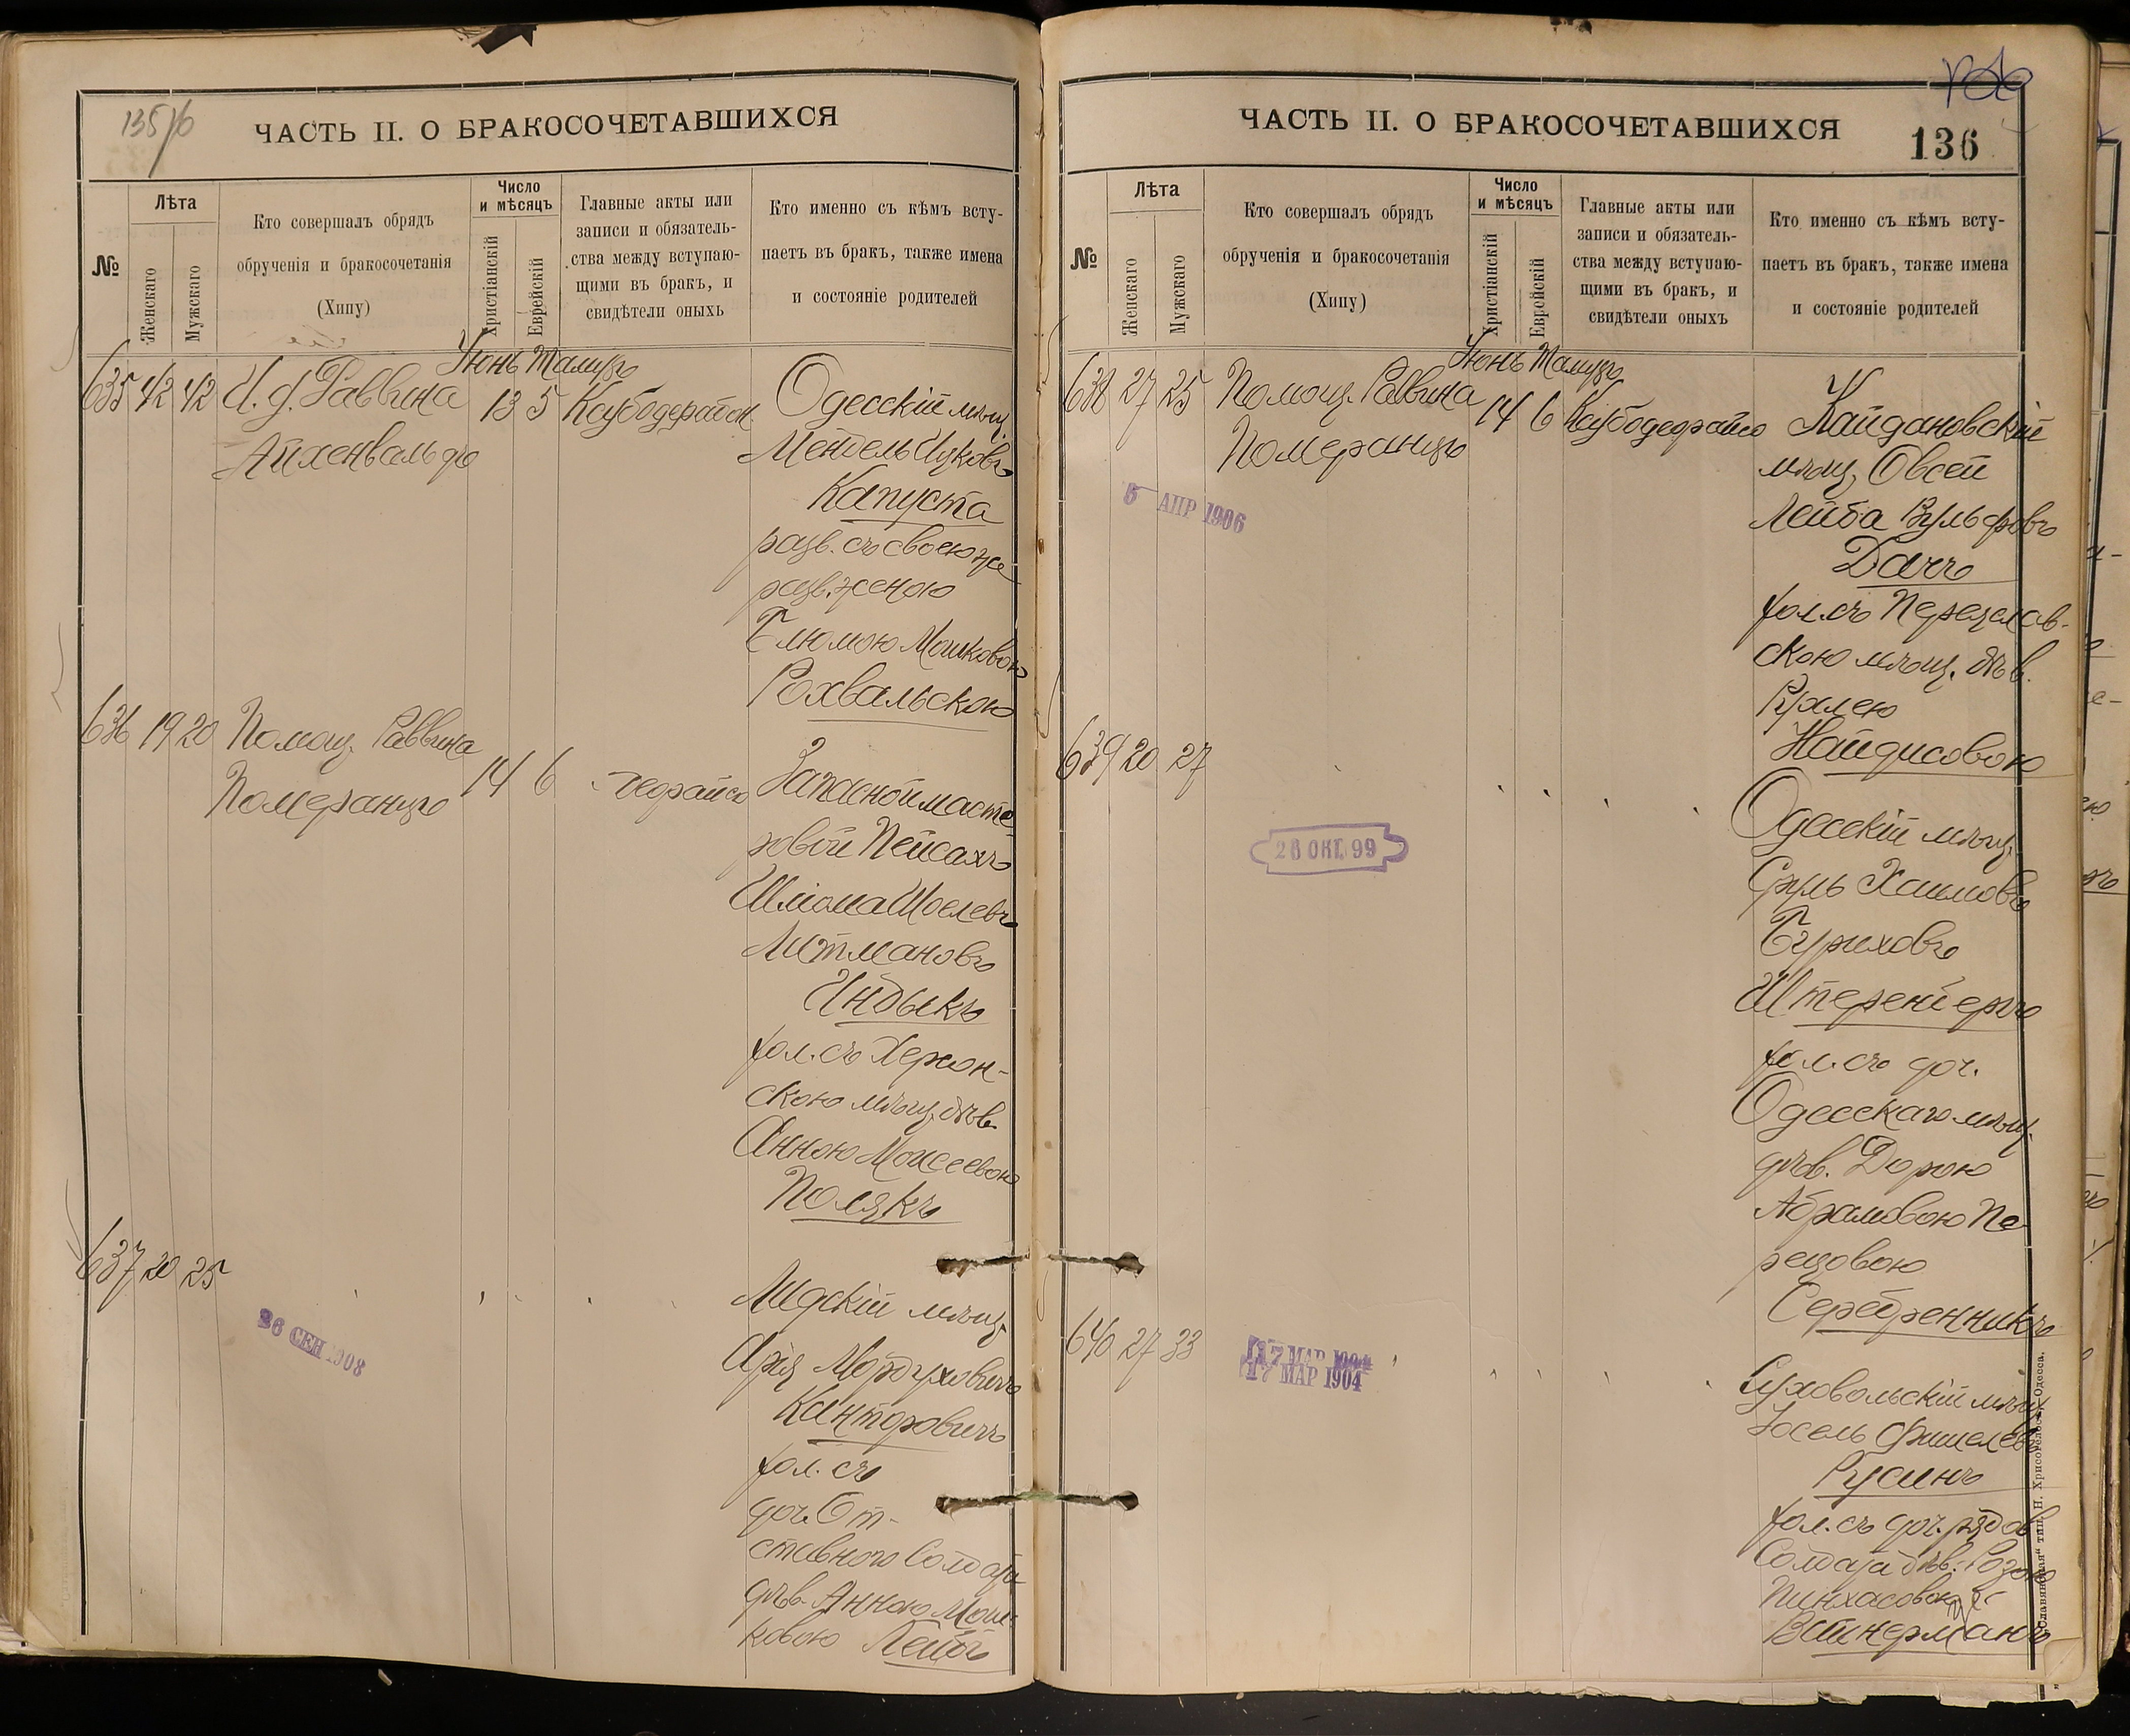 135/6
ЧАСТЬ II. О БРАКОСОЧЕТАВШИХСЯ
№
Лѣта
Женскаго
Мужскаго
Кто совершалъ обрядъ
обрученія и бракосочетанія
(Хипу)
Число
и мѣсяцъ
Христіанскій
Еврейскій
Главные акты или
записи и обязатель-
ства между вступаю-
щими въ бракъ, и
свидѣтели оныхъ
Кто именно съ кѣмъ всту-
паетъ въ бракъ, также имена
и состояніе родителей
Іюнь Тамузъ
635 42 42 И. д. Раввина 13 5
Айхенвальдъ
Одесскій мѣщ.
Мендель Ицковъ
Капуста
разв. съ своею же
разв. женою
Блюмою Мошковою
Рохвальскою
636 19 20 Помощ. Раввина 14 6
Померанцъ
Запасной масте-
ровой Пейсахъ
Шліома Шоелевъ
Литмановъ
Индыкъ
хол. съ Херсон-
скою мѣщ. дѣв.
Анною Моисеевою
Полякъ
637 20 25
26 СЕН 1908
Лидскій мѣщ.
Арія Мордуховичъ
Канторовичъ
хол. съ
доч. От-
ставного Солдата
дѣв. Анною Мош-
ковою Лейбъ
ЧАСТЬ II. О БРАКОСОЧЕТАВШИХСЯ
136
№
Лѣта
Женскаго
Мужскаго
Кто совершалъ обрядъ
обрученія и бракосочетанія
(Хипу)
Число
и мѣсяцъ
Христіанскій
Еврейскій
Главные акты или
записи и обязатель-
ства между вступаю-
щими въ бракъ, и
свидѣтели оныхъ
Кто именно съ кѣмъ всту-
паетъ въ бракъ, также имена
и состояніе родителей
Іюнь Тамузъ
638 27 25 Помощ. Раввина 14 6
Померанцъ
5 АПР 1906
Кайдановскій
мѣщ. Овсей
Лейба Вульфовъ
Дачъ
хол. съ Переяслав-
скою мѣщ. дѣв.
Рухлею
Найдисовою
639 20 27
26 ОКТ. 99
Одесскій мѣщ.
Сруль Хаимовъ
Буриховъ
хол. съ доч.
Одесскаго мѣщ.
дѣв. Дорою
Абрамовою Пе-
рецовою
Серебренникъ
640 27 33
17 МАР 1904
17 МАР 1904
Суховольскій мѣщ.
Іосель Фишелевъ
Русинъ
хол. съ доч. рядов.
Солдата дѣв. Розою
Пинхасовою
Вайнерманъ
„Славянская“ тип. Н. Хрисогелосъ, Одесса.